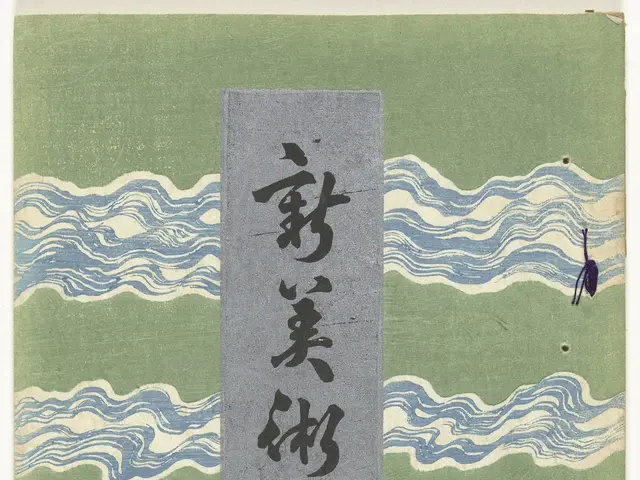 新美術